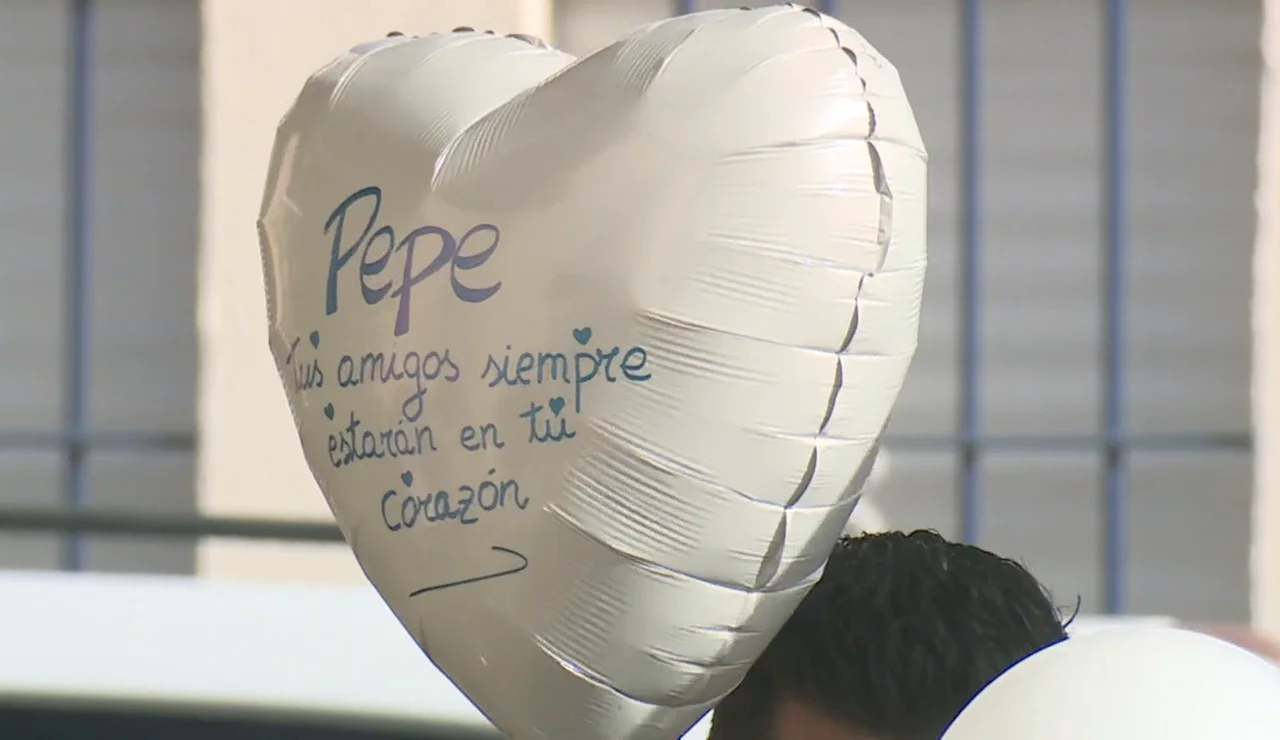 Pepe
Tus amigos siempre
estarán en tú
corazón